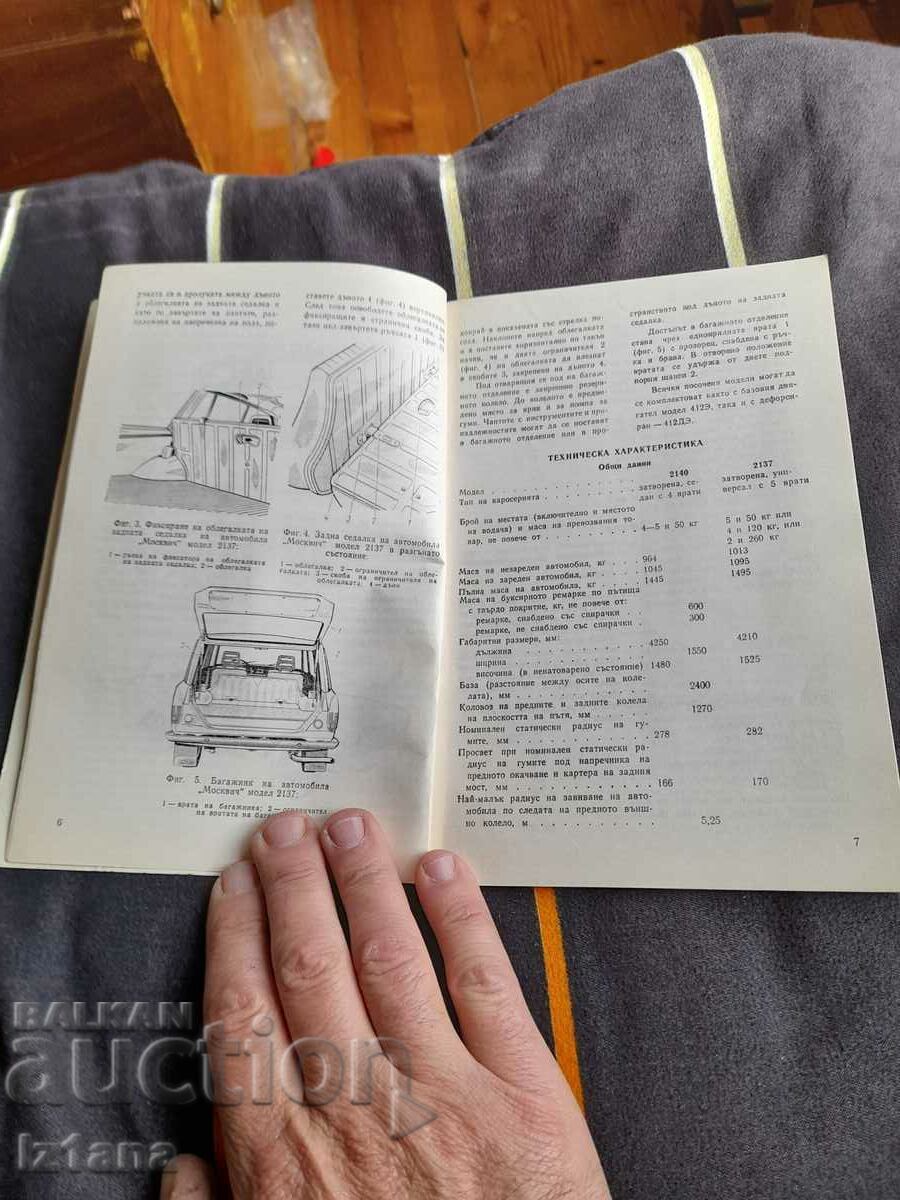 участа си в пролуката между дъното
и облегалката на задната седалка и
като по завъртате на пантите, раз-
положени на напречника на пода, по-
ставете дъното 4 (фиг. 4) вертикално.
След това освободете облегалката от
фиксиращите и странични скоби. За
това цел завъртете ръчката 1 (фиг. 3)
Фиг. 3. Фиксиране на облегалката на
задната седалка на автомобила
„Москвич" модел 2137:
1 — гъвка на фиксатора на облегалката
на задната седалка; 2 — облегалка
Фиг. 4. Задна седалка на автомобила
„Москвич" модел 2137 в разгънато
състояние:
1 — облегалка; 2 — ограничител на обле-
галката; 3 — скоба на ограничителя на
облегалката. 4 — дъно
Фиг. 5. Багажник на автомобила
„Москвич" модел 2137:
1 — врата на багажника; 2 — ограничител
на вратата на
6
докрай в показаната със стрелка по-
сока. Наклонете напред облегалката
и я поставете хоризонтално по такъв
начин, че и двата ограничителя 2
(фиг. 4) на облегалката да влизат
в скобите 3, закрепени на дъното 4.
Под отварящия се под на багаж-
ното отделение е закрепено резерв-
ното колело. До колелото е предви-
дено място за крик и за помпа за
гуми. Чантите с инструментите и при-
надлежностите могат да се поставят
в багажното отделение или в про-
странството под дъното на задната
седалка.
Достъпът в багажното отделение
става чрез еднокрилната врата 1
(фиг. 5) с прозорец, снабдена с ръч-
ка и брава. В отворено положение
вратата се удържа от двете под-
порни щанги 2.
Всички посочени модели могат да
се комплектоват както с базовия дви-
гател модел 412Э, така и с дефорси-
ран — 412ДЭ.
ТЕХНИЧЕСКА ХАРАКТЕРИСТИКА
Общи данни
Модел . . . 2140 2137
Тип на каросерията . . . затворена, се-
дан с 4 врати затворена, уни-
версал с 5 врати
Брой на местата (включително и мястото
на водача) и маса на превозвания то-
вар, не повече от . . . 4—5 и 50 кг 5 и 50 кг или
4 и 120 кг, или
2 и 260 кг
Маса на незареден автомобил, кг . . . 964 1013
Маса на зареден автомобил, кг . . . 1045 1095
Пълна маса на автомобила, кг . . . 1445 1495
Маса на буксирното ремарке по пътища
с твърдо покритие, кг, не повече от:
ремарке, снабдено със спирачки . . 600
ремарке, не снабдено със спирачки . 300
Габаритни размери, мм:
дължина . . . 4250 4210
ширина . . . 1550
височина (в ненатоварено състояние) 1480 1525
База (разстояние между осите на коле-
лата), мм . . . 2400
Коловоз на предните и задните колела
на плоскостта на пътя, мм . . . 1270
Номинален статически радиус на гу-
мите, мм . . . 278 282
Просвет при номинален статически ра-
диус на гумите под напречника на
предното окачване и картера на задния
мост, мм . . . 166 170
Най-малък радиус на завиване на авто-
мобила по следата на предното външ-
но колело, м . . . 5,25
7
BALKAN
auction
Iztana